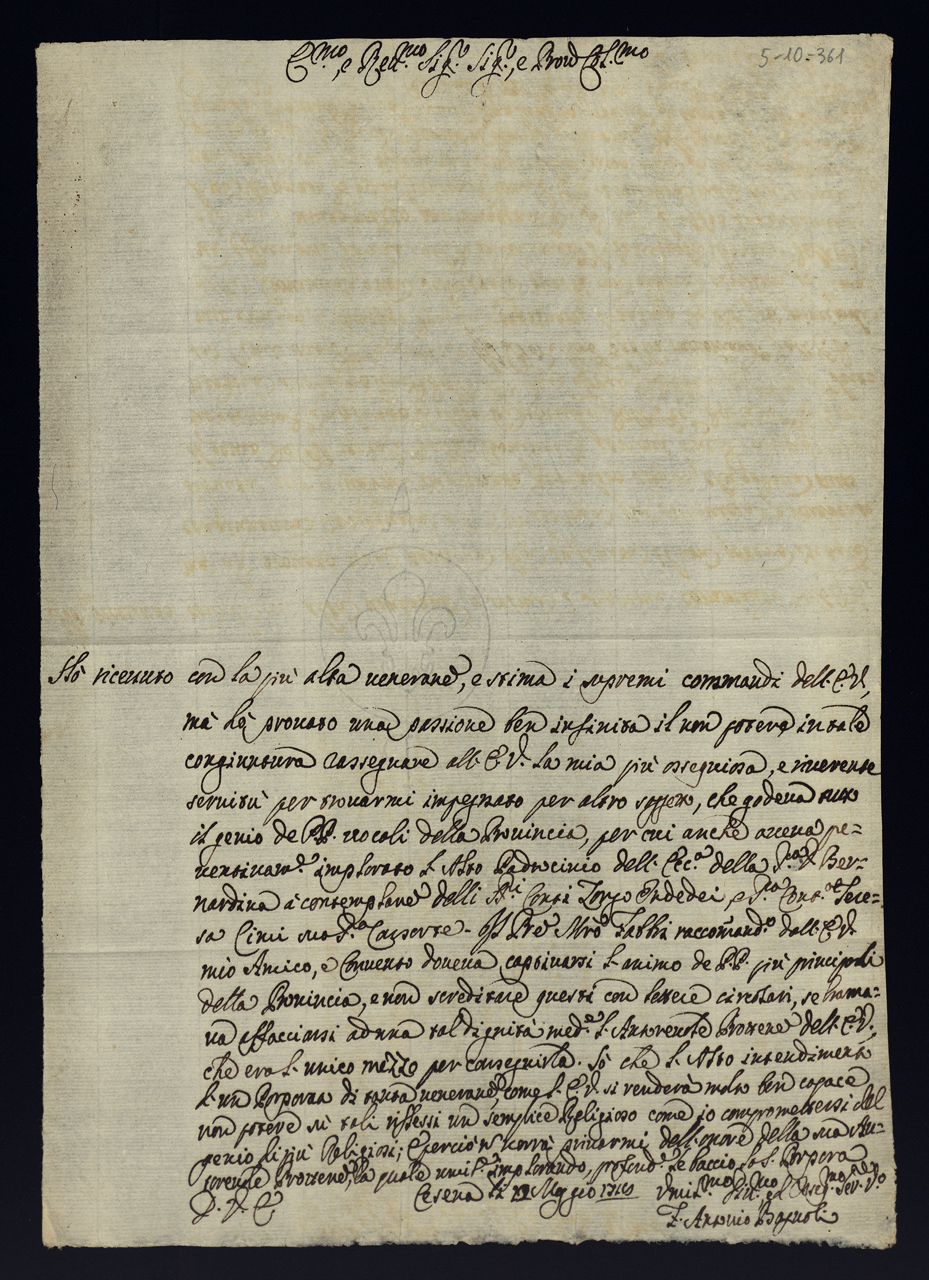 5-10-361
E.mo, e Rev.mo Sig.r Sig.r, e Pron Col.mo
Hò riceuuto con la più alta uenerane, e stima i supremi commandi dell'E.V.,
mà hò prouato una passione ben infinita il non potere in tale
congiuntura rassegnare all'E.V. la mia più ossequiosa, e riuerente
seruitù per trouarmi impegnato per altro sogg.to, che godeua tutto
il genio de PP. uocali della Prouincia, per cui anche aueua pre=
uentiuam.e implorato l'Alto Padrocinio dell'Ecc.a della Sig.a D. Ber=
nardina à contemplane delli SS.ri Conti Zorzo Indedei, e Sig.a Cont.a Tere=
sa Cimi sua Consorte. Il Pre Mro Fabbri raccomand.o dall'E.V.
mio Amico, e Conuento doueua captiuarsi l'animo de PP. più principali
della Prouincia, e non screditare questi con lettere circolari, se brama=
ua affacciarsi ad una tal dignità med.e l'Autoreuole Prottene dell'E.V.,
che era l'unico mezzo per conseguirla. Sò che l'Alto intendimento
d'un Porpora di tanta uenerane, come l'E.V. si renderà molto ben capace
non potere sù tali riflessi un semplice Religioso come io compromettersi del
genio di più Religiosi; e perciò n uorrà priuarmi dell'onore della sua Au=
toreuole Prottene, la quale umil.e implorando, profond.e le baccio la S. Porpora
D. V. E.
Cesena li 12 Maggio
Umil.mo Diu.mo ed Osseq.mo Ser. V.o
F. Antonio Bagnoli